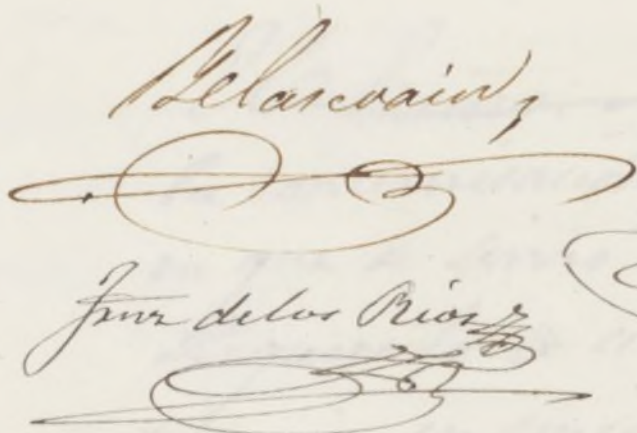 Belascoain
Frnz de los Rios